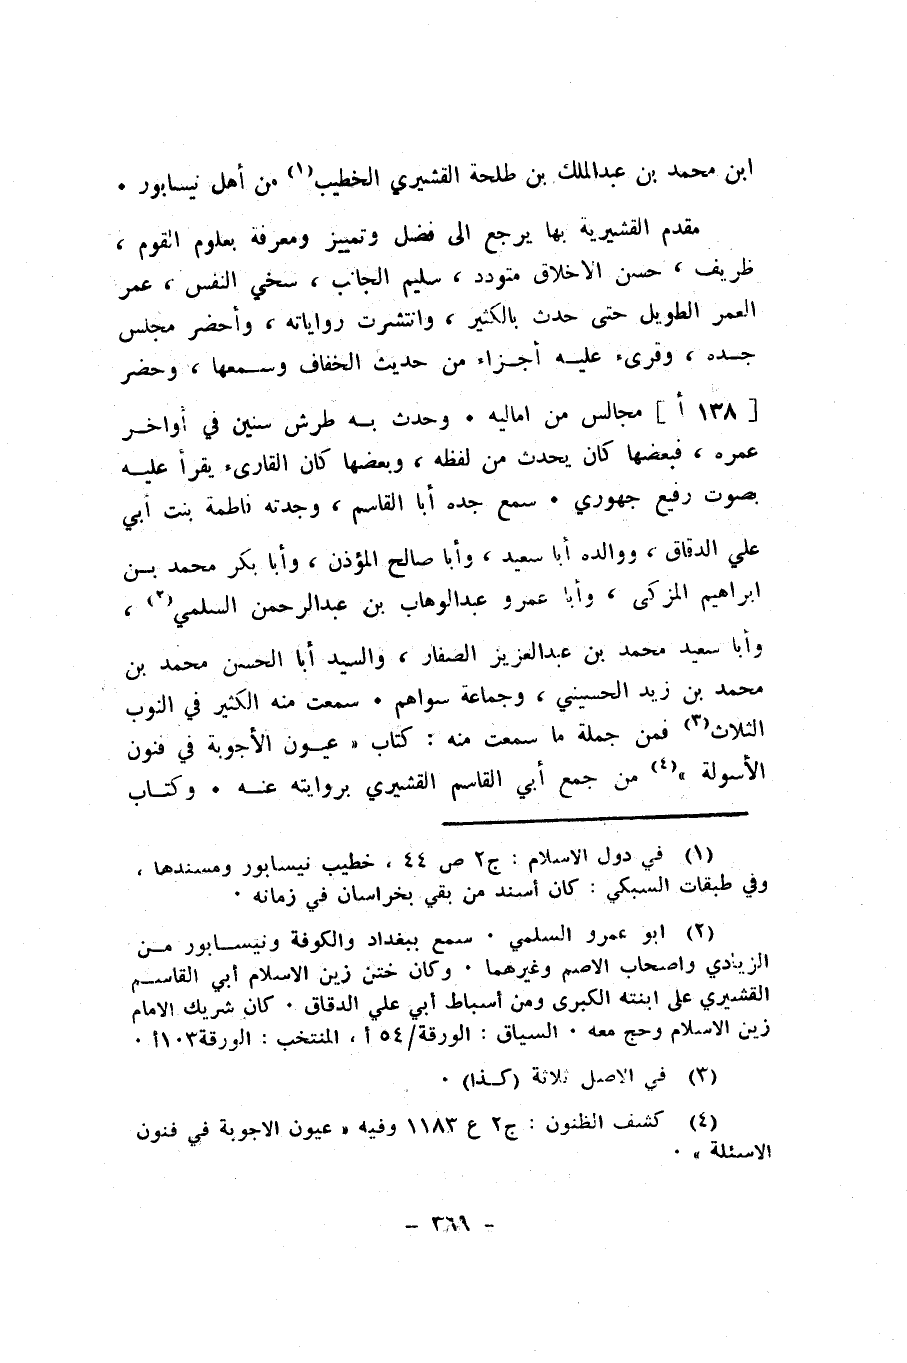 ابن محمد بن عبدالملك بن طلحة القشيري الخطيب(١) من أهل نيسابور ٠
مقدم القشيرية بها يرجع الى فضل وتمييز ومعرفة بعلوم القوم ،
ظريف ، حسن الاخلاق متودد ، سليم الجانب ، سخي النفس ، عمر
العمر الطويل حتى حدث بالكثير ، وانتشرت رواياته ، وأحضر مجلس
جده ، وقرىء عليه أجزاء من حديث الخفاف وسمعها ، وحضر
[ ١٣٨ أ ] مجالس من اماليه ٠ وحدث به طرش سنين في أواخر
عمره ، فبعضها كان يحدث من لفظه ، وبعضها كان القارىء يقرأ عليه
بصوت رفيع جهوري ٠ سمع جده أبا القاسم ، وجدته فاطمة بنت أبي
علي الدقاق ، ووالده أبا سعيد ، وأبا صالح المؤذن ، وأبا بكر محمد بن
ابراهيم المزكى ، وأبا عمرو عبدالوهاب بن عبدالرحمن السلمي(٢) ،
وأبا سعيد محمد بن عبدالعزيز الصفار ، والسيد أبا الحسن محمد بن
محمد بن زيد الحسيني ، وجماعة سواهم ٠ سمعت منه الكثير في النوب
الثلاث(٣) فمن جملة ما سمعت منه : كتاب « عيون الأجوبة في فنون
الأسولة »(٤) من جمع أبي القاسم القشيري بروايته عنه ٠ وكتاب
(١) في دول الاسلام : ج٢ ص ٤٤ ، خطيب نيسابور ومسندها ،
وفي طبقات السبكي : كان أسند من بقي بخراسان في زمانه ٠
(٢) ابو عمرو السلمي ٠ سمع ببغداد والكوفة ونيسابور من
الزيادي واصحاب الاصم وغيرهما ٠ وكان ختن زين الاسلام أبي القاسم
القشيري على ابنته الكبرى ومن أسباط أبي علي الدقاق ٠ كان شريك الامام
زين الاسلام وحج معه ٠ السياق : الورقة/٥٤ أ ، المنتخب : الورقة١٠٣أ ٠
(٣) في الاصل ثلاثة (كذا) ٠
(٤) كشف الظنون : ج٢ ع ١١٨٣ وفيه « عيون الاجوبة في فنون
الاسئلة » ٠
– ٣٦٩ –